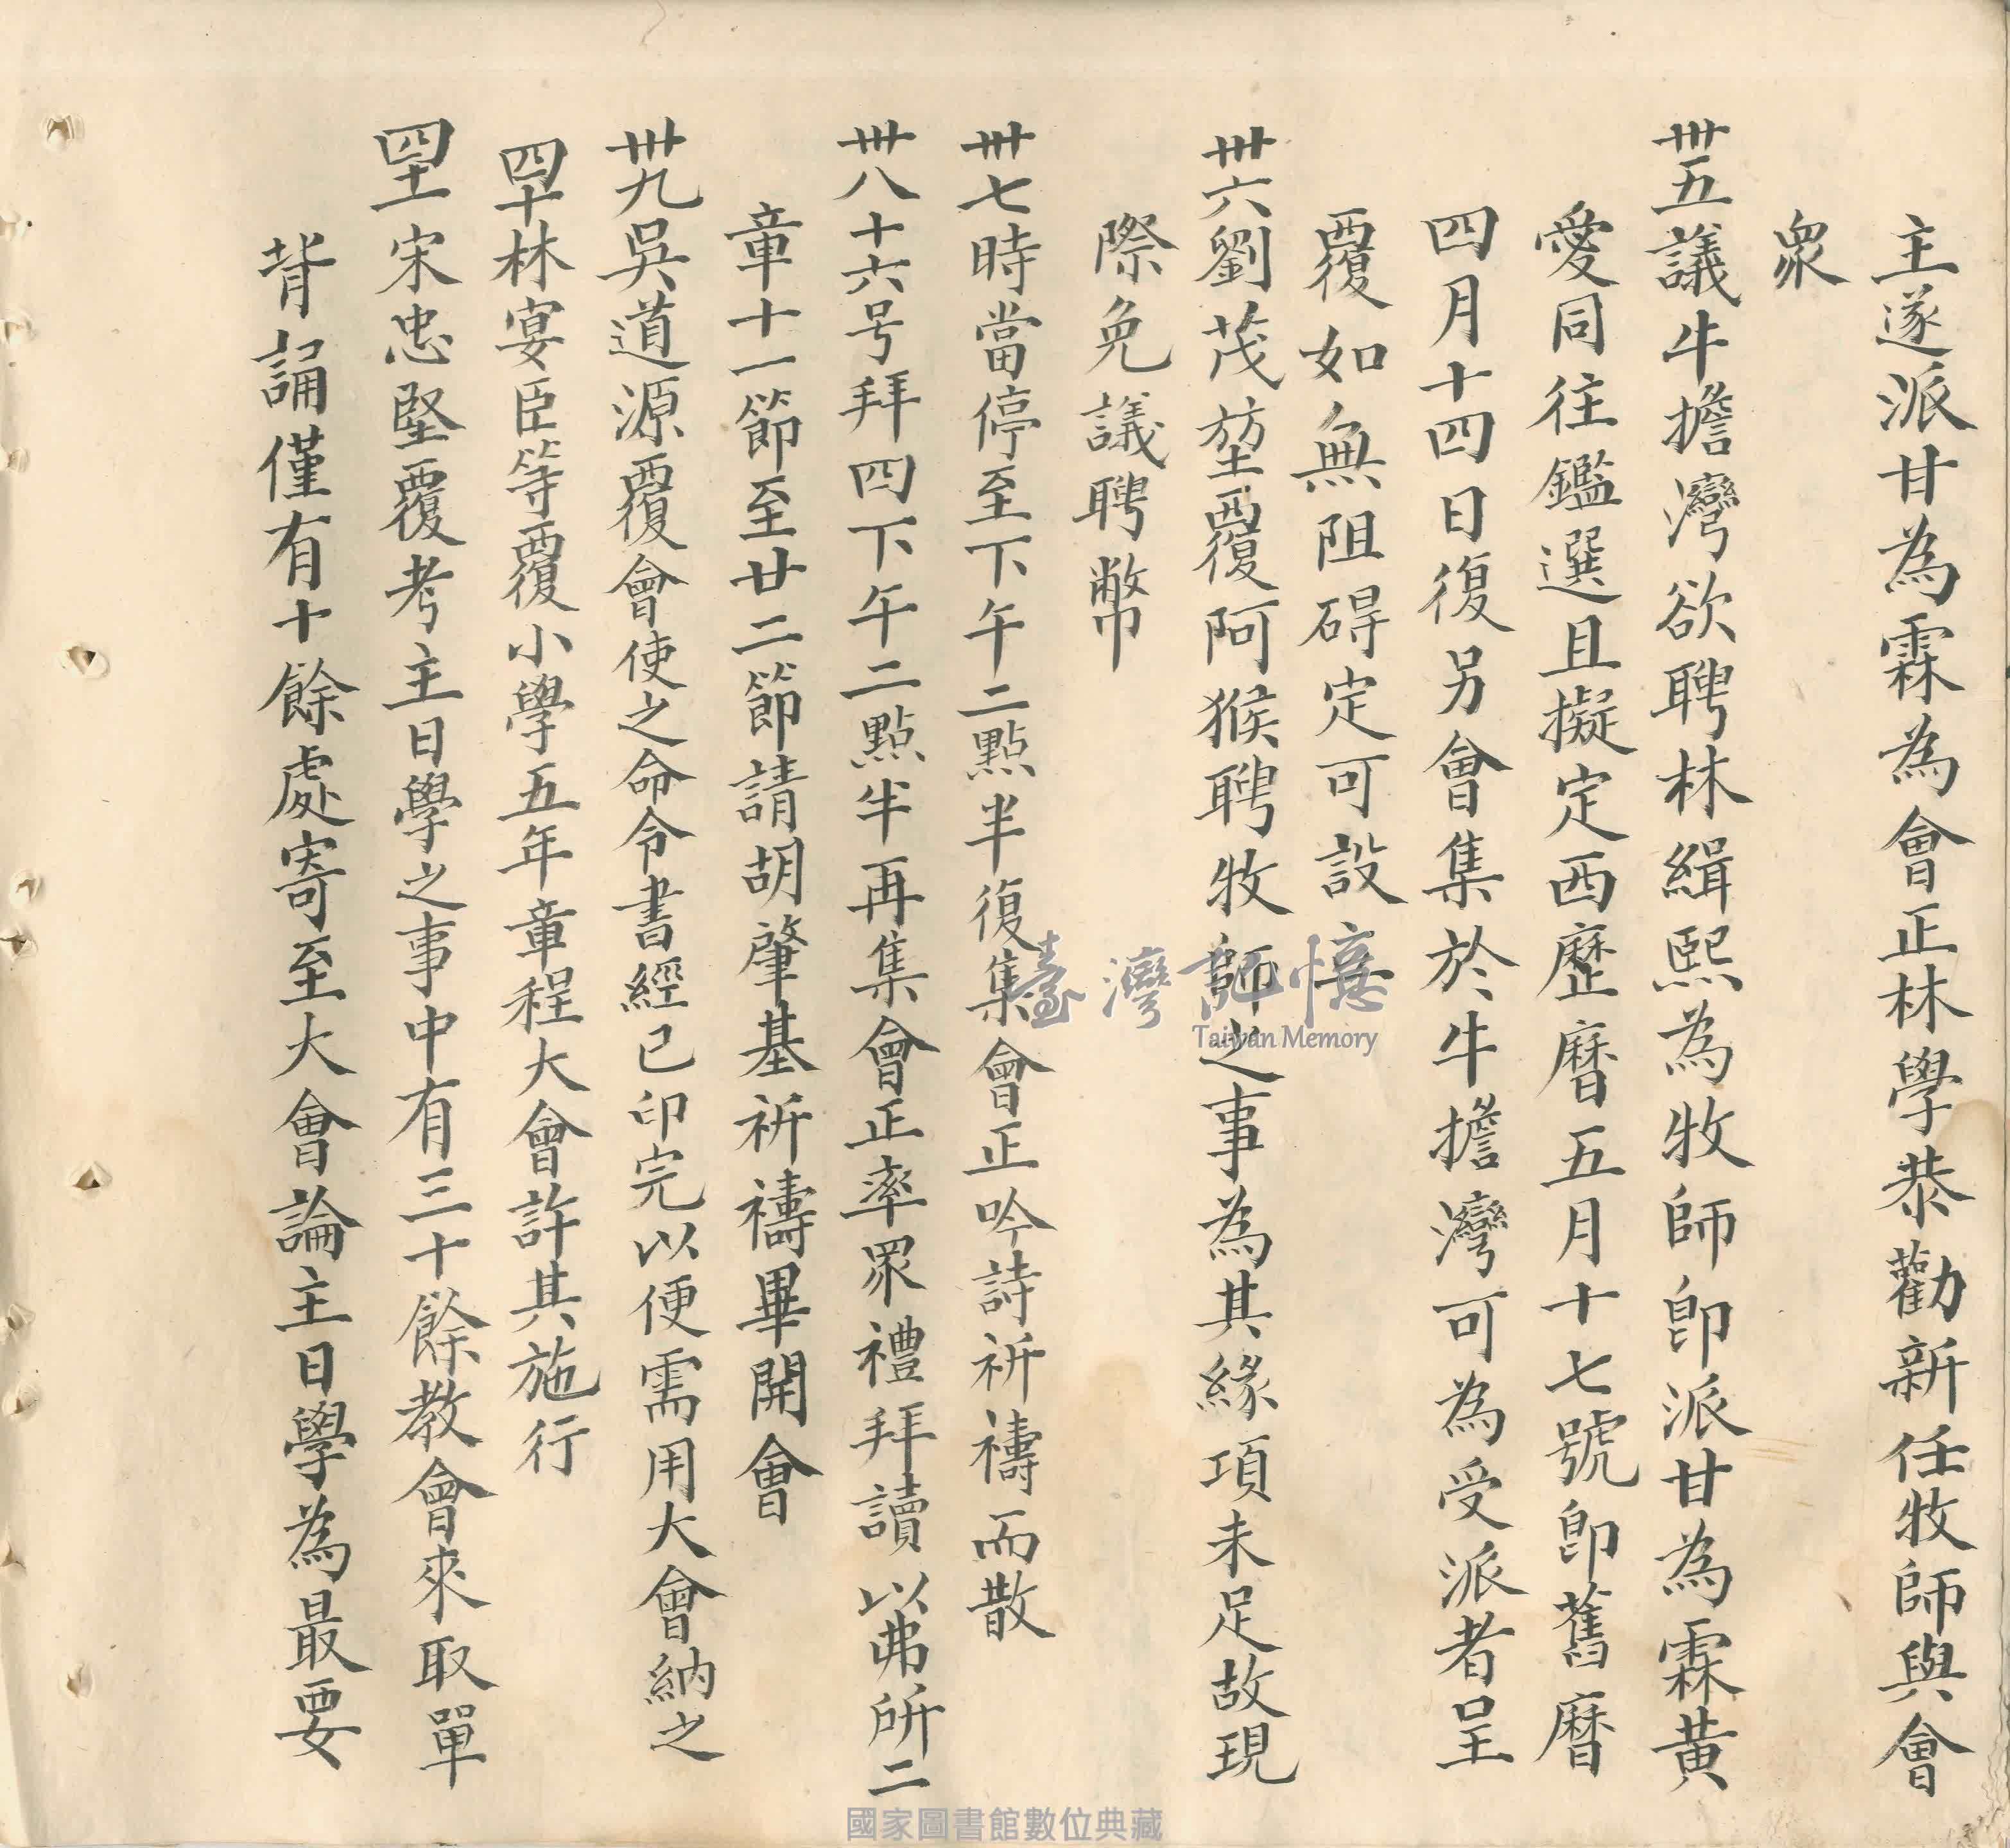 主遂派甘為霖為會正林學恭勸新任牧師與會
衆
卅五議牛擔灣欲聘林緝熙為牧師卽派甘為霖黃
愛同往鑑選且擬定西歷曆五月十七號卽舊曆
四月十四日復另會集於牛擔灣可為受派者呈
覆如無阻碍定可設
卅六劉茂堃覆阿猴聘牧師之事為其緣項未足故現
際免議聘幣
卅七時當停至下午二點半復集會正吟詩祈禱而散
卅八十六号拜四下午二點半再集會正率眾禮拜讀以弗所二
章十一節至廿二節請胡肇基祈禱畢開會
卅九吳道源覆會使之命令書經已印完以便需用大會納之
四十林宴臣等覆小學五年章程大會許其施行
四十一宋忠堅覆考主日學之事中有三十餘教會來取單
背誦僅有十餘處寄至大會論主日學為最要
臺灣記憶
Taiwan Memory
國家圖書館數位典藏